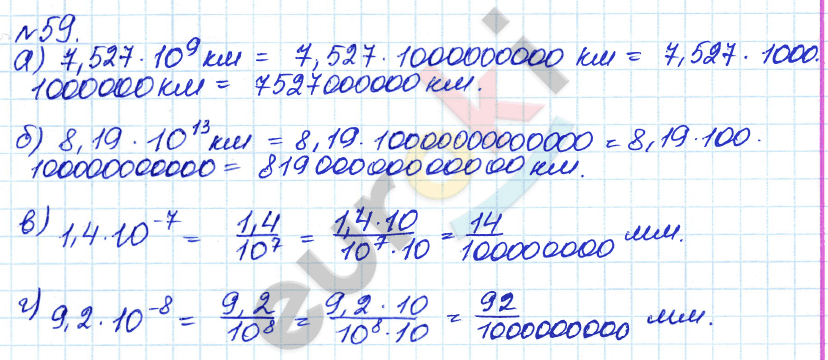 №59.
а) 7,527 · 10⁹ км = 7,527 · 1000000000 км = 7,527 · 1000.
1000000 км = 7527000000 км.
б) 8,19 · 10¹³ км = 8,19 · 10000000000000 = 8,19 · 100 ·
100000000000 = 81900000000000 км.
в) 1,4 · 10⁻⁷ = 1,4/10⁷ = 1,4 · 10/10⁷ · 10 = 14/100000000 мм.
г) 9,2 · 10⁻⁸ = 9,2/10⁸ = 9,2 · 10/10⁸ · 10 = 92/1000000000 мм.
euroki